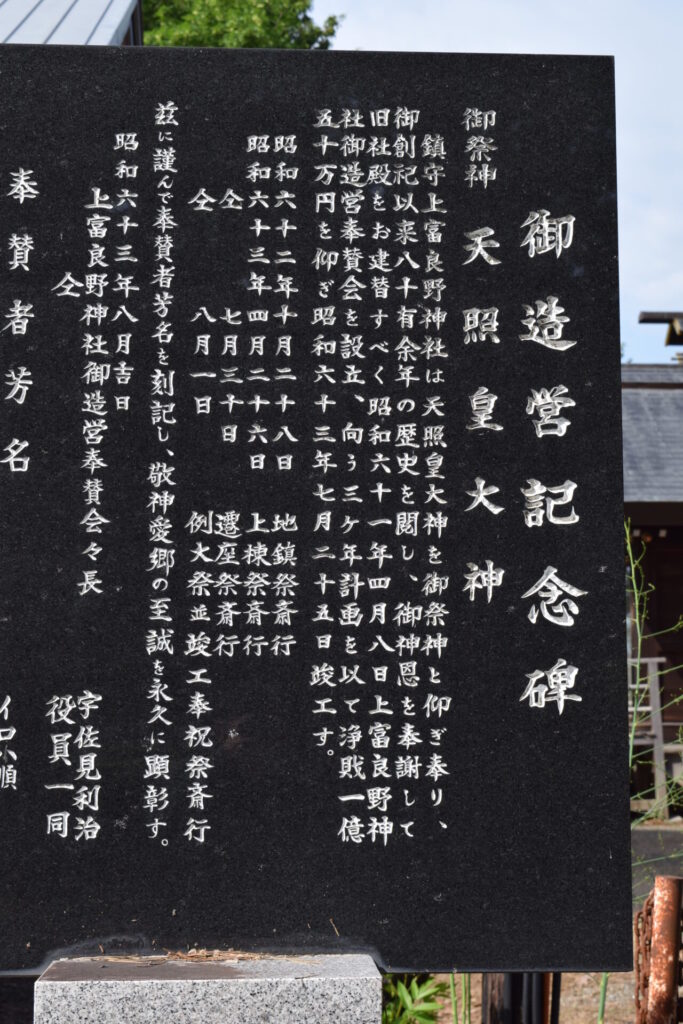 御造営記念碑
御祭神 天照皇大神
鎮守上富良野神社は天照皇大神を御祭神と仰ぎ奉り、
御創祀以来八十有余年の歴史を閲し、御神恩を奉謝して
旧社殿をお建替すべく昭和六十一年四月八日上富良野神
社御造営奉賛会を設立、向う三ケ年計画を以て浄賎一億
五十万円を仰ぎ昭和六十三年七月二十五日竣工す。
昭和六十二年十月二十八日 地鎮祭斎行
昭和六十三年四月二十六日 上棟祭斎行
仝 七月三十日 遷座祭斎行
仝 八月一日 例大祭並竣工奉祝祭斎行
茲に謹んで奉賛者芳名を刻記し、敬神愛郷の至誠を永久に顕彰す。
昭和六十三年八月吉日
上富良野神社御造営奉賛会々長 宇佐見利治
仝 役員一同
奉賛者芳名